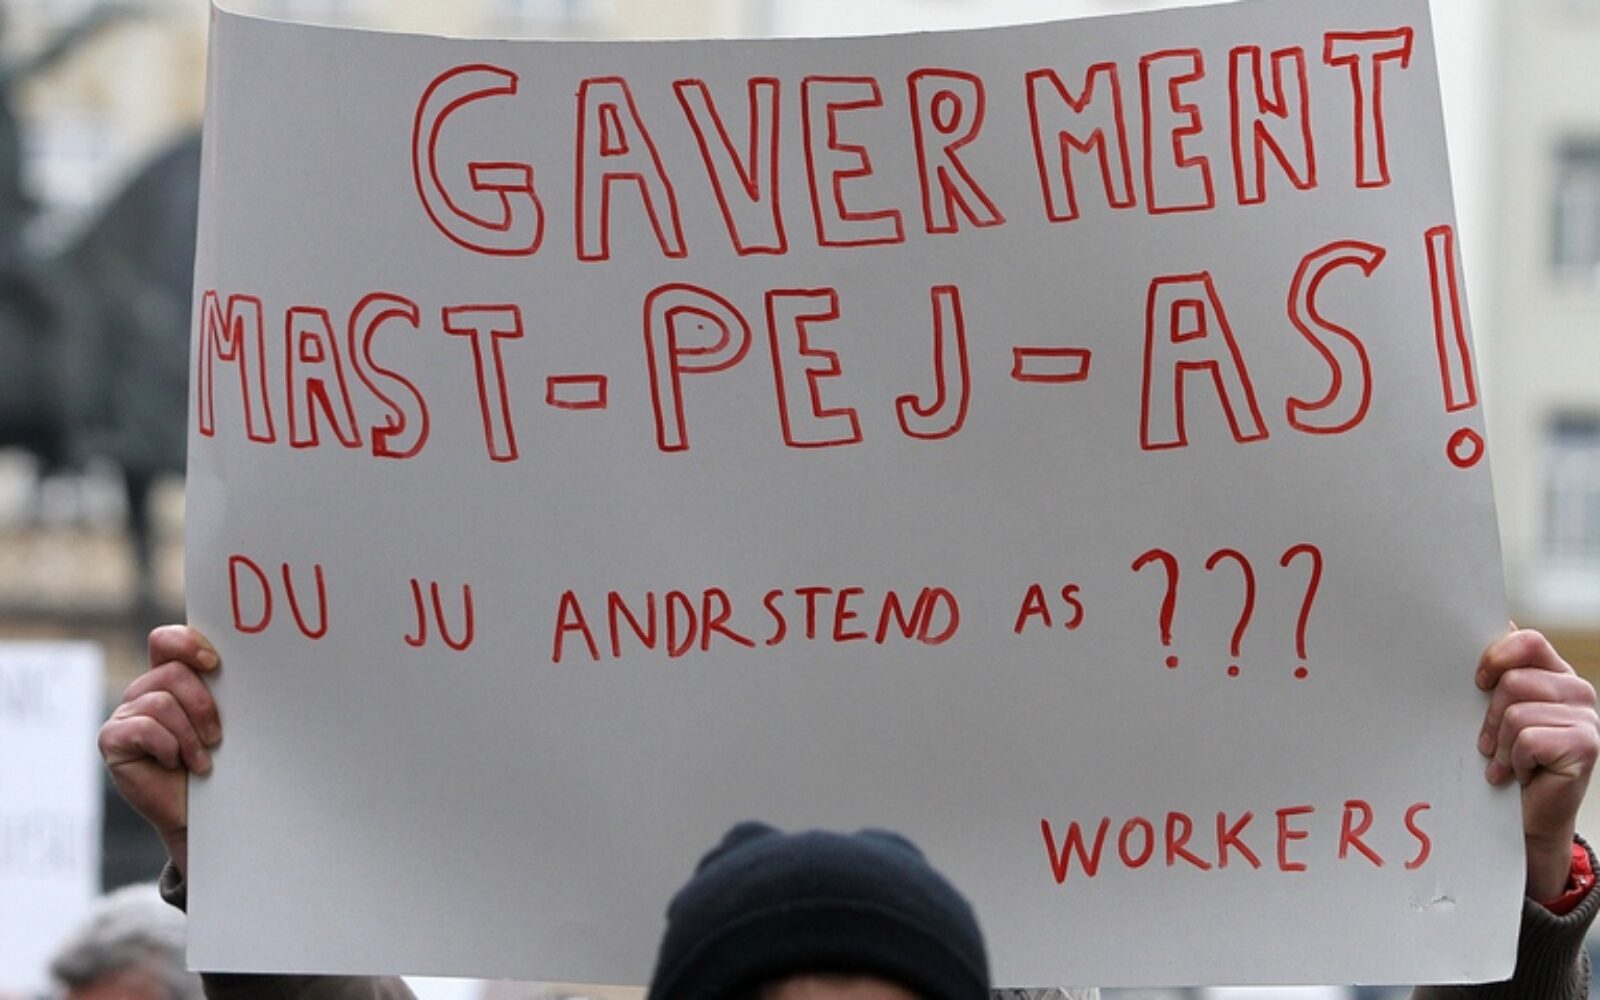 GAVERMENT
MAST-PEJ-AS!
DU JU ANDRSTEND AS ???
WORKERS